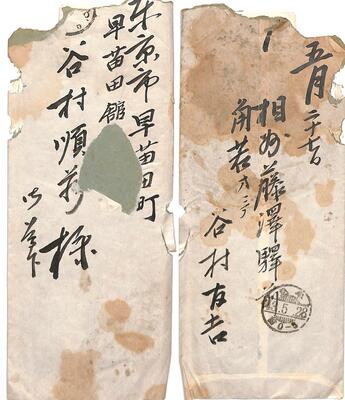 東京市早苗田町
早苗田館
谷村順蔵様
五月二十七日
相州藤澤驛前
角若方ニテ
谷村百吉
5.28